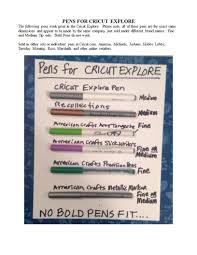 PENS FOR CRICUT EXPLORE
The following pens work great in the Cricut Explore. Please note, all of these pens are the exact same
dimensions and appear to be made by the same company, just sold under different brand names. Fine
and Medium Tip only. Bold Pens do not work.
Sold in either sets or individual pens at Cricut.com, Amazon, Michaels, JoAnn, Hobby Lobby,
Tuesday Morning, Ross, Marshalls and other online retailers.
Pens for CRICUT EXPLORE
CRICUT Explore Pen
Medium
Recollections
Medium
American Crafts Ann Tangerine
Fine
American Crafts Slick Writers
Fine OR Medium
American Crafts Precision Pens
Fine
American Crafts Metallic Marker
Fine OR Medium
NO BOLD PENS FIT....